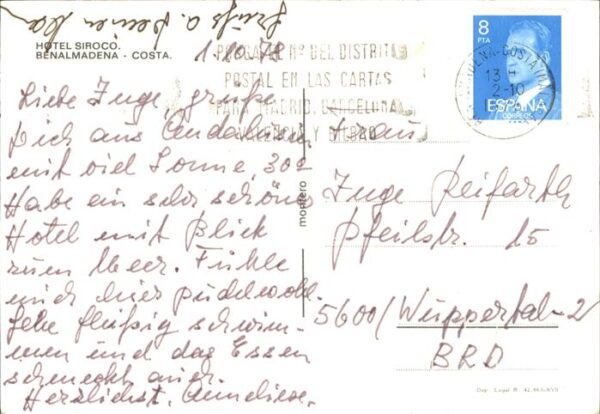 Grüße a. Deinen
HOTEL SIROCO.
BENALMADENA - COSTA.
1.10.78
PONGA EL Nº DEL DISTRITO
POSTAL EN LAS CARTAS
PARA MADRID, BARCELONA,
VALENCIA Y BILBAO
BENALMADENA-COSTA
13 H
2-10
8
PTA
ESPAÑA
CORREOS
Liebe Inge, grüße
Dich aus Andalusien
mit viel Sonne, 30°
Habe ein sehr schönes
Hotel mit Blick
zum Meer. Fühle
mich hier pudelwohl.
Gehe fleißig schwim-
men und das Essen
schmeckt auch.
Herzlichst, Anneliese.
montero
Frau
Inge Reifarth
Pfeilstr. 15
5600/Wuppertal-2
BRD
Dep. Legal B.